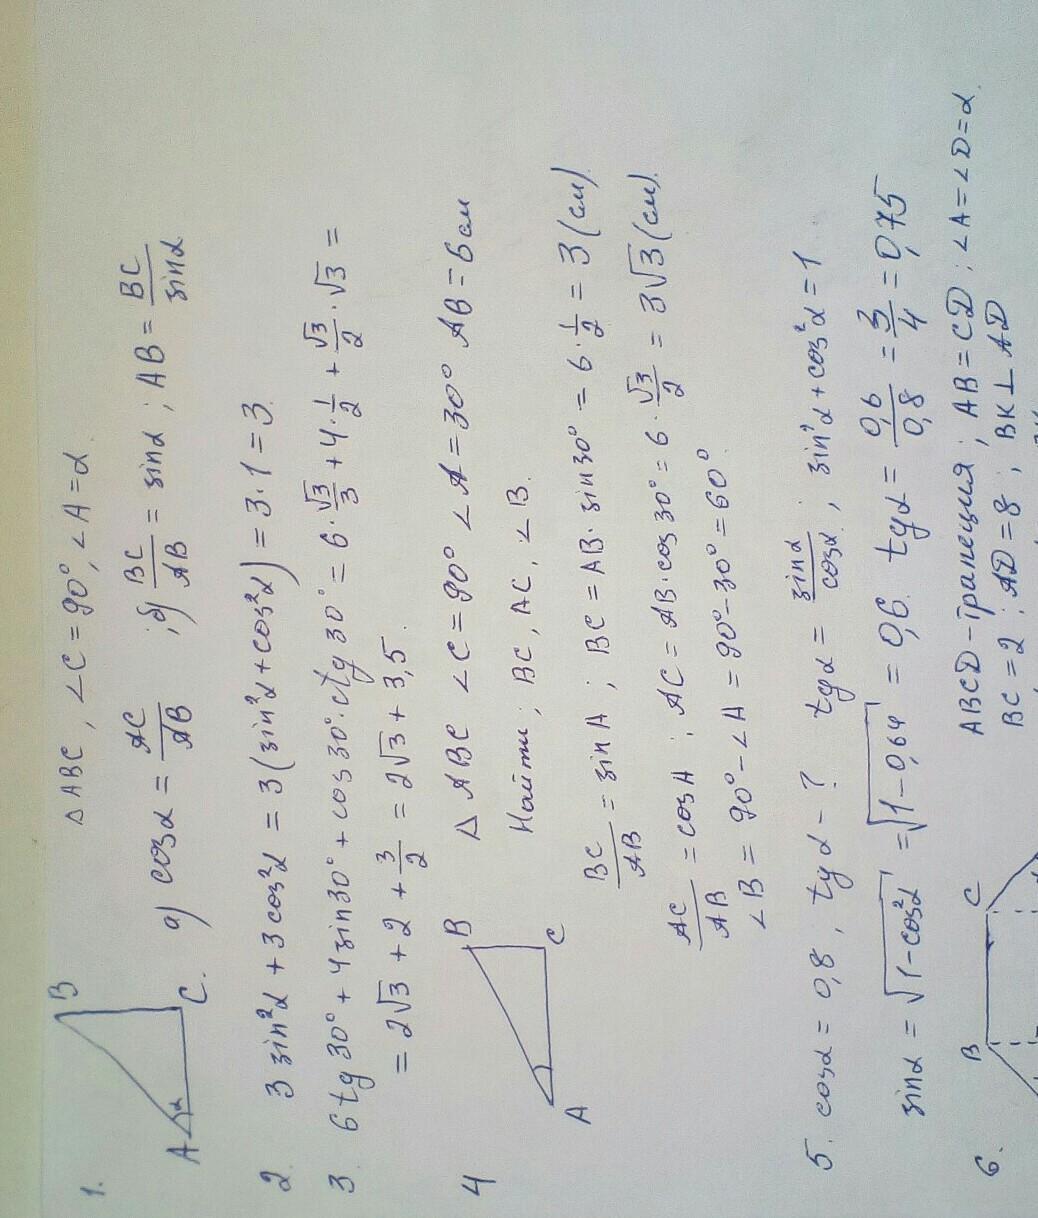 1. △ABC, ∠C = 90°, ∠A = α
B
A α C.
а) cosα = AC/AB ; б) BC/AB = sinα ; AB = BC/sinα
2. 3 sin²α + 3 cos²α = 3 (sin²α + cos²α) = 3·1 = 3.
3. 6 tg 30° + 4 sin 30° + cos 30°·ctg 30° = 6·√3/3 + 4·1/2 + √3/2·√3 =
= 2√3 + 2 + 3/2 = 2√3 + 3,5.
4 △ ABC ∠C = 90° ∠A = 30° AB = 6 см
B
A C
Найти ; BC, AC, ∠B.
BC/AB = sin A ; BC = AB·sin 30° = 6·1/2 = 3 (см).
AC/AB = cos A ; AC = AB·cos 30° = 6·√3/2 = 3√3 (см).
∠B = 90° - ∠A = 90° - 30° = 60°.
5. cosα = 0,8, tgα - ? tgα = sinα/cosα ; sin²α + cos²α = 1.
sinα = √1-cos²α = √1-0,64 = 0,6. tgα = 0,6/0,8 = 3/4 = 0,75
6. ABCD - трапеция ; AB = CD ; ∠A = ∠D = α.
B C
BC = 2 ; AD = 8 ; BK ⊥ AD